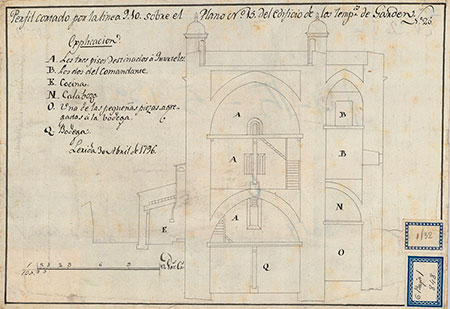 Perfil cortado por la linea 9.10. sobre el Plano Nº Vº del edificio de los Temp.s de Garden. Nº 25.
Explicacion.
A. Los tres pisos Destinados à Quarteles.
B. Los dos del Comandante.
E. Cocina.
N. Calabozo.
O. Una de las pequeñas piezas agregadas à la bodega.
Q. Bodega.
Lerida 30 Abril de 1796.
A
B
A
B
A
N
E
Q
O